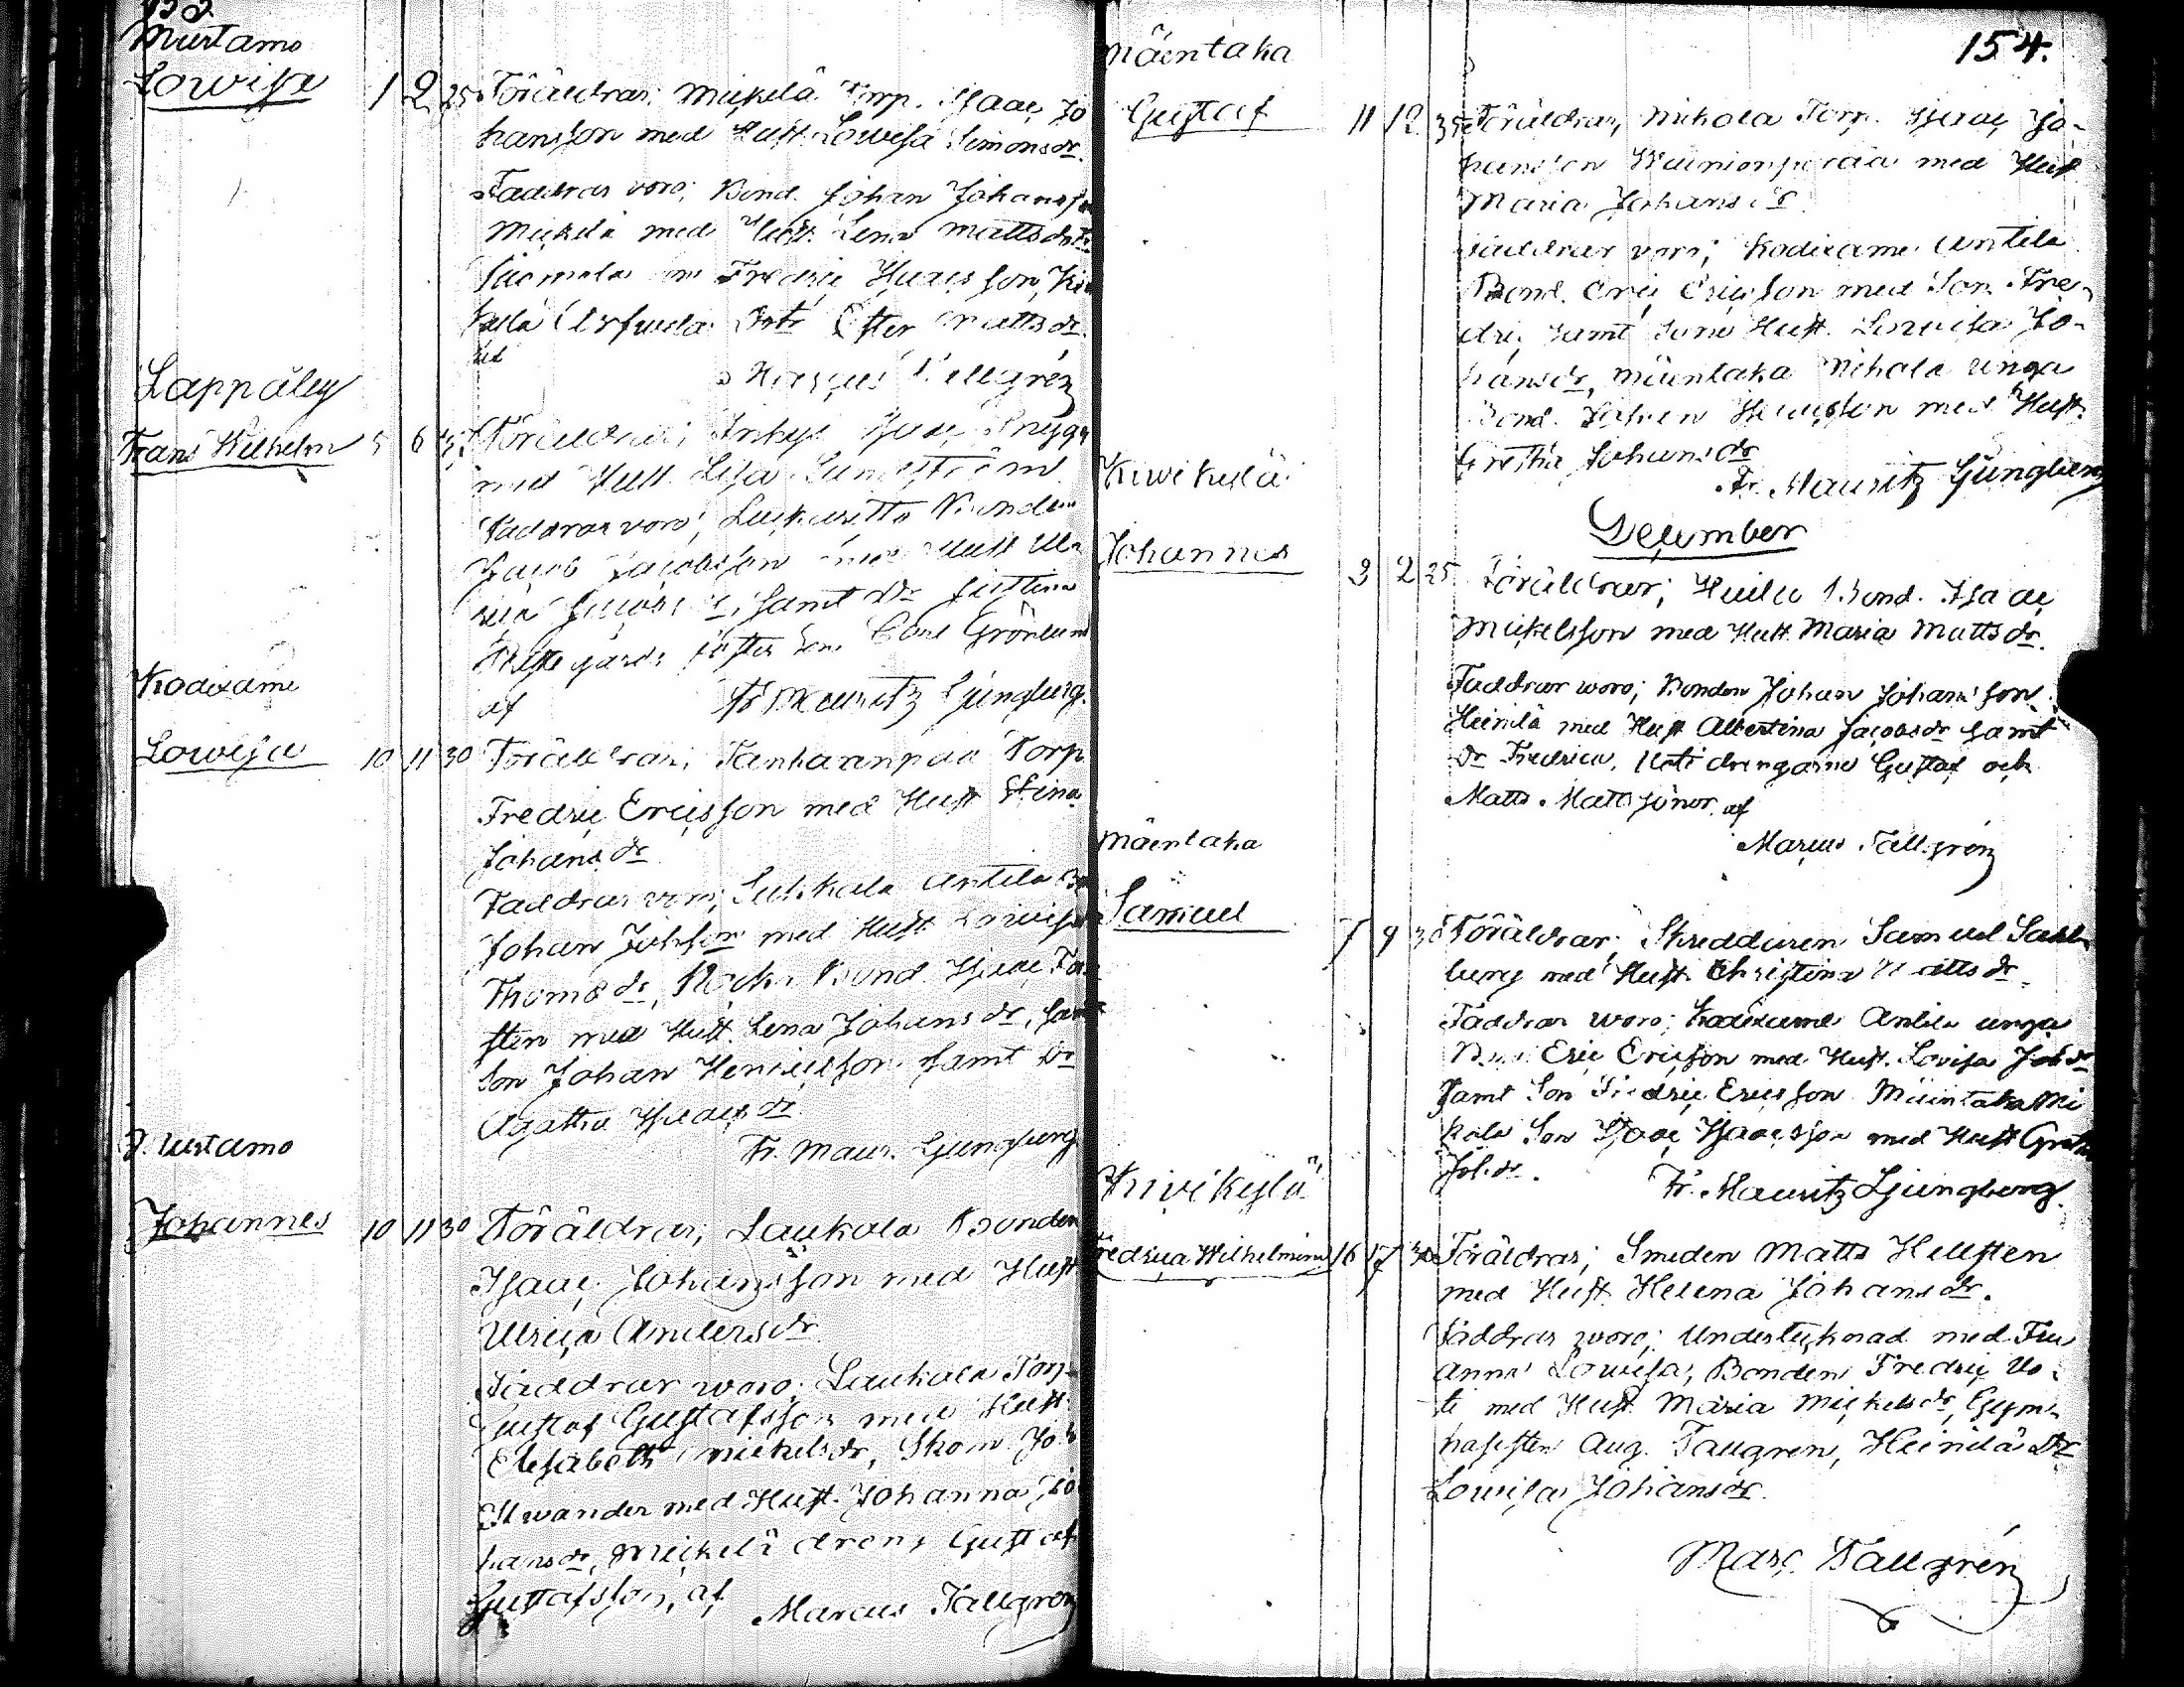 153.
Murtamo
Lowisa 1 2 25 Föräldrar, Mickelä Torp. Isaac Jo
hansson med Hust. Lowisa Simonsdr.
Faddrar voro; Bond. Johan Johansson
Mickelä med Hust. Lena Mattsdr
Fredric Isacsson,
Dotr Ester Mattsdr.
af
Marcus Tallgrén
Lappäley
Frans Wilhelm 5 6 Föräldrar; Isaac
med Hust. Lisa Lundström
Faddrar voro; Bonden
Jacob Jacobsson med Hust. Ul
rica Jacobsdr, samt Dr Justina
Carl Grönlund
af Fr. Mauritz Ljungberg.
Kodixami
Lowisa 10 11 30 Föräldrar; Tanhuanpää Torp.
Fredric Ericsson med Hust Stina
Johansdr
Faddrar voro, Sukkala Antila
Johan Johsson med Hust Lowisa
Thomsdr, Bond Isaac
sten med Hust. Lena Johansdr, samt
Son Johan Henricsson samt Dr
Agatha Isacsdr
Fr. Maur. Ljungberg
Murtamo
Johannes 10 11 30 Föräldrar; Laukola Bonden
Isaac Johansson med Hust
Ulrica Andersdr
Faddrar woro; Laukola Torp.
Gustaf Gustafsson med Hust.
Elisabeth Mickelsdr, Skom. Joh
Stwander med Hust. Johanna Jo
hansdr, Mickelä dreng Gustaf
Gustafsson, af Marcus Tallgrén
154.
Mäentaka
Gustaf 11 12 35 Föräldrar, Mikola Torp. Isaac Jo-
hansson Wainionperää med Hust
Maria Johansdr.
Faddrar voro; Kodixami Antila
Bond. Eric Ericsson med Son Fre-
dric samt Sone Hust. Lowisa Jo-
hansdr, Mäentaka Mikola unga
Bond. Johan Isacsson med Hust.
Gretha Johansdr
Fr. Mauritz Ljungberg
December
Kiwikylä
Johannes 3 2 25 Föräldrar; Bond. Isaac
Mickelsson med Hust. Maria Mattsdr.
Faddrar woro; Bonden Johan Johansson
Heinilä med Hust Albertina Jacobsdr samt
Dr Fredrica, Uoti drengarne Gustaf och
Matts Mattssöner, af
Marcus Tallgrén
Mäentaka
Samuel 7 9 38 Föräldrar; Skreddaren Samuel Sahl
berg med Hust. Christina Mattsdr.
Faddrar woro; Kodixami Antila unga
Bond Eric Ericsson med Hust. Lovisa Johdr
samt Son Fredric Ericsson Mäentaka Mi
kola Son Isaac Isacsson med Hust Greta
Joh.dr. Fr. Mauritz Ljungberg.
Kivikylä
Fredrica Wilhelmina 16 17 30 Föräldrar; Smeden Matts Hellsten
med Hust. Helena Johansdr.
Faddrar woro; Undertecknad med Fru
Anna Lowisa, Bonden Fredric Uo-
ti med Hust Maria Mickelsdr, Gym-
nasisten Aug. Tallgren, Heinilä Dr
Lowisa Johansdr.
Marc. Tallgrén